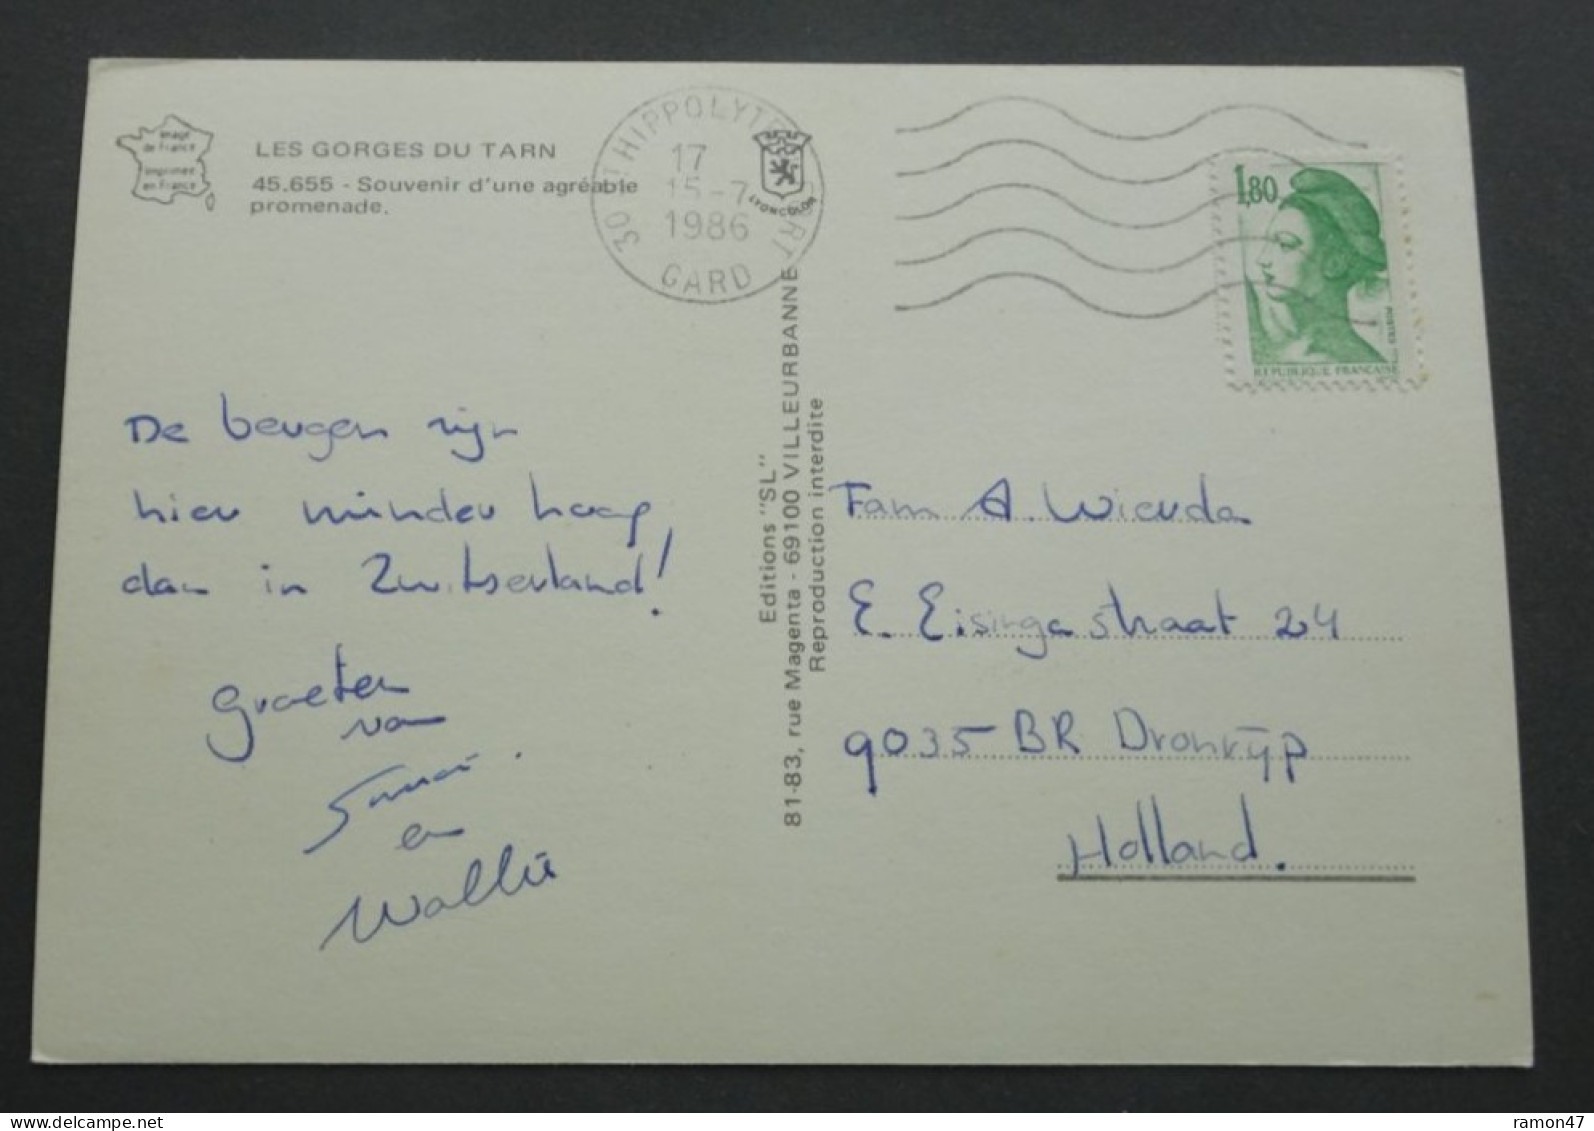 Image
de France
Imprimée
en France
LES GORGES DU TARN
45.655 - Souvenir d'une agréable
promenade.
30 ST HIPPOLYTE DU FORT
17
15-7
1986
GARD
LYONCOLOR
1,80
POSTES
REPUBLIQUE FRANCAISE
De beugen zijn
hier minder hoog
dan in Zwitserland!
Groeten
van
en
Wallie
Editions "SL"
81-83, rue Magenta - 69100 VILLEURBANNE
Reproduction interdite
Fam A. Wierda
E. Eisingastraat 24
9035 BR Dronrijp
Holland.
ramon47